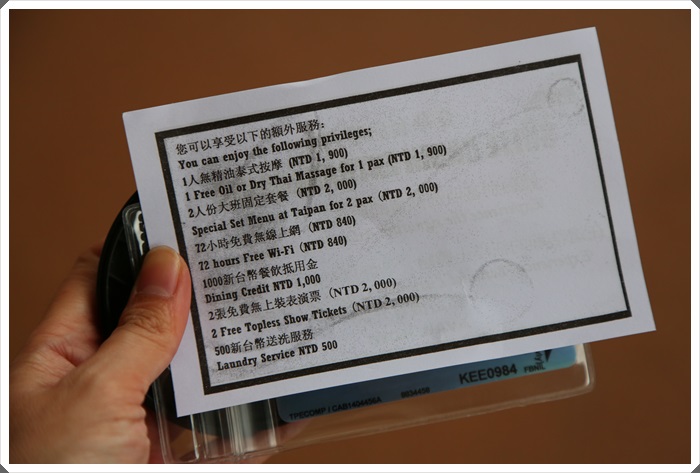 您可以享受以下的額外服務:
You can enjoy the following privileges;
1人無精油泰式按摩 (NTD 1, 900)
1 Free Oil or Dry Thai Massage for 1 pax (NTD 1, 900)
2人份大班固定套餐 (NTD 2, 000)
Special Set Menu at Taipan for 2 pax (NTD 2, 000)
72小時免費無線上網 (NTD 840)
72 hours Free Wi-Fi (NTD 840)
1000新台幣餐飲抵用金
Dining Credit NTD 1,000
2張免費無上裝表演票 (NTD 2, 000)
2 Free Topless Show Tickets (NTD 2, 000)
500新台幣送洗服務
Laundry Service NTD 500
KEE0984
FBNL